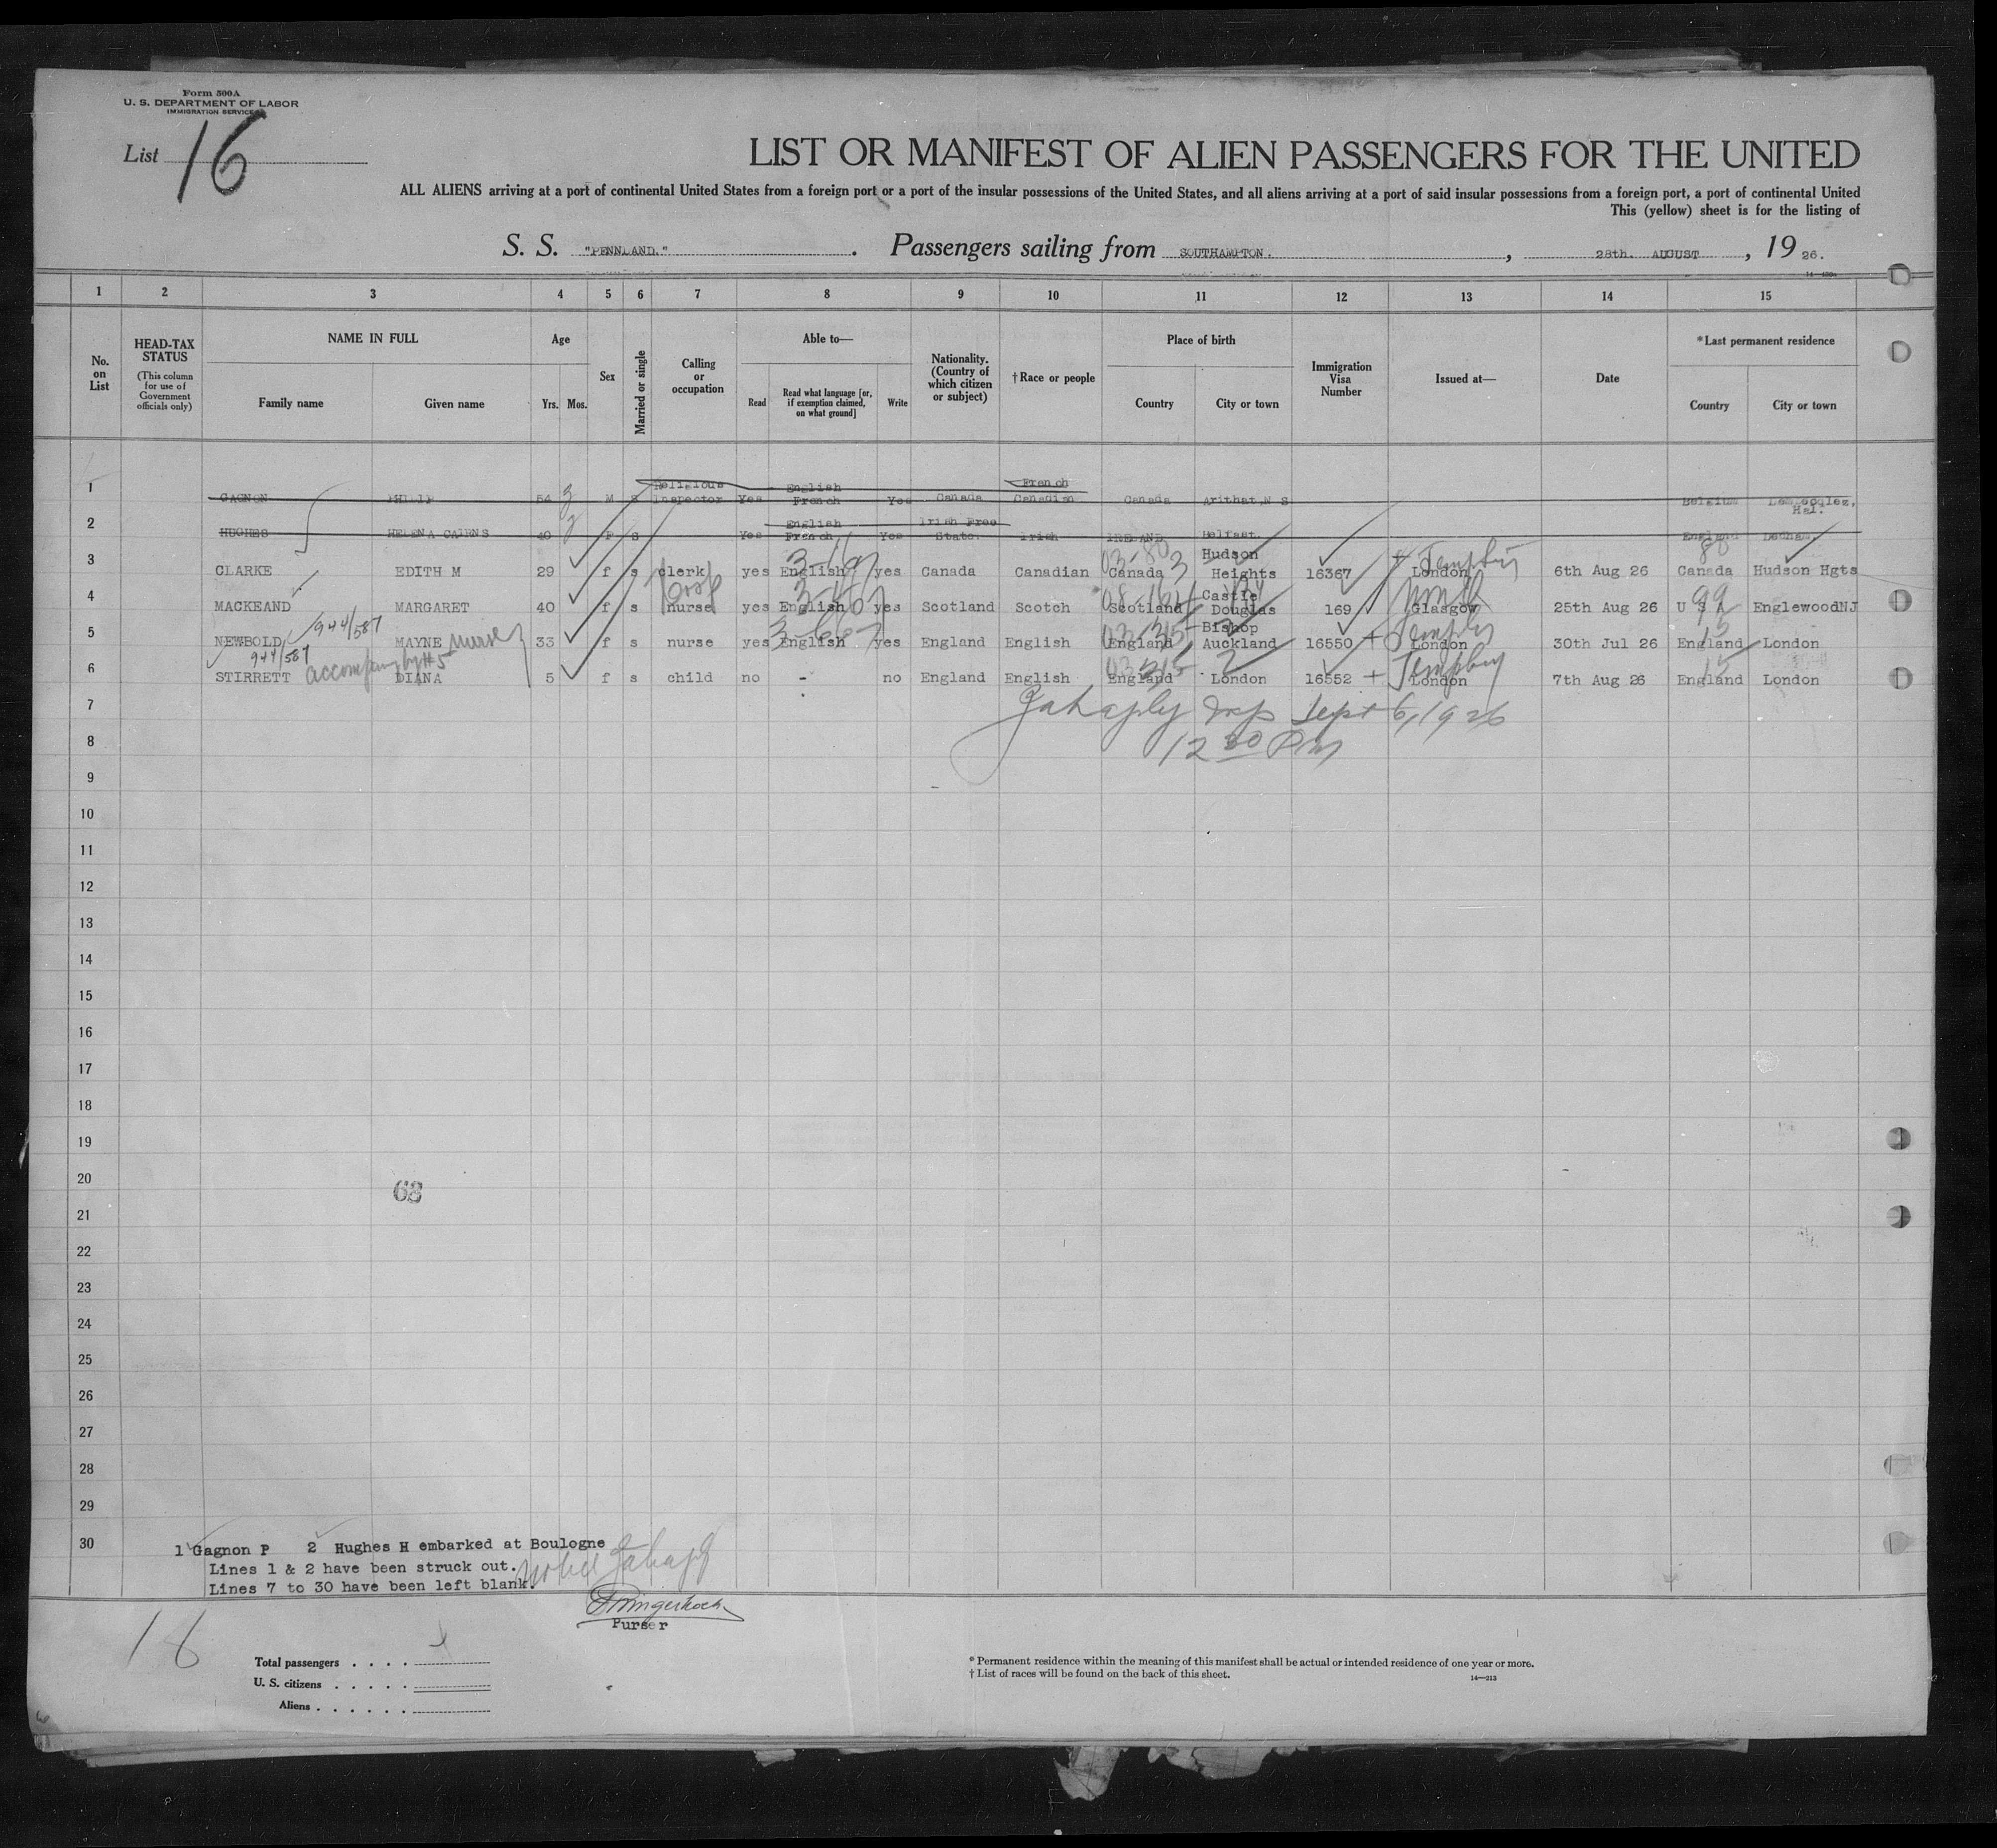 Form 500A
U. S. DEPARTMENT OF LABOR
IMMIGRATION SERVICE
List 16
LIST OR MANIFEST OF ALIEN PASSENGERS FOR THE UNITED
ALL ALIENS arriving at a port of continental United States from a foreign port or a port of the insular possessions of the United States, and all aliens arriving at a port of said insular possessions from a foreign port, a port of continental United
This (yellow) sheet is for the listing of
S. S. "PENNLAND." . Passengers sailing from SOUTHAMPTON. , 28th. AUGUST , 19 26.
1 2 3 4 5 6 7 8 9 10 11 12 13 14 15
No. on List
HEAD-TAX STATUS (This column for use of Government officials only)
NAME IN FULL
Family name Given name
Age
Yrs. Mos.
Sex
Married or single
Calling or occupation
Able to—
Read Read what language [or, if exemption claimed, on what ground] Write
Nationality. (Country of which citizen or subject)
†Race or people
Place of birth
Country City or town
Immigration Visa Number
Issued at—
Date
*Last permanent residence
Country City or town
1 GAGNON PHILIP 54 M S Religious Inspector Yes English French Yes Canada French Canadian Canada Arithat, N S Belgium Hal.
2 HUGHES HELENA CAIRNS 40 F s Yes English French Yes Irish Free State. Irish IRELAND Belfast. England
3 CLARKE EDITH M 29 f s clerk yes English yes Canada Canadian Canada Hudson Heights 16367 London 6th Aug 26 Canada Hudson Hgts
4 MACKEAND MARGARET 40 f s nurse yes English yes Scotland Scotch Scotland Castle Douglas 169 Glasgow 25th Aug 26 U S A EnglewoodNJ
944/587
5 NEWBOLD MAYNE nurse 33 f s nurse yes English yes England English England Bishop Auckland 16550 London 30th Jul 26 England London
944/587 accompany by #5
6 STIRRETT DIANA 5 f s child no - no England English England London 16552 London 7th Aug 26 England London
7 Sept 6, 1926
8 12 30 PM
9
10
11
12
13
14
15
16
17
18
19
20
63
21
22
23
24
25
26
27
28
29
30
1 Gagnon P 2 Hughes H embarked at Boulogne
Lines 1 & 2 have been struck out.
Lines 7 to 30 have been left blank.
Purser
16
Total passengers . . . .
U. S. citizens . . . . .
Aliens . . . . . .
* Permanent residence within the meaning of this manifest shall be actual or intended residence of one year or more.
† List of races will be found on the back of this sheet.
14—213